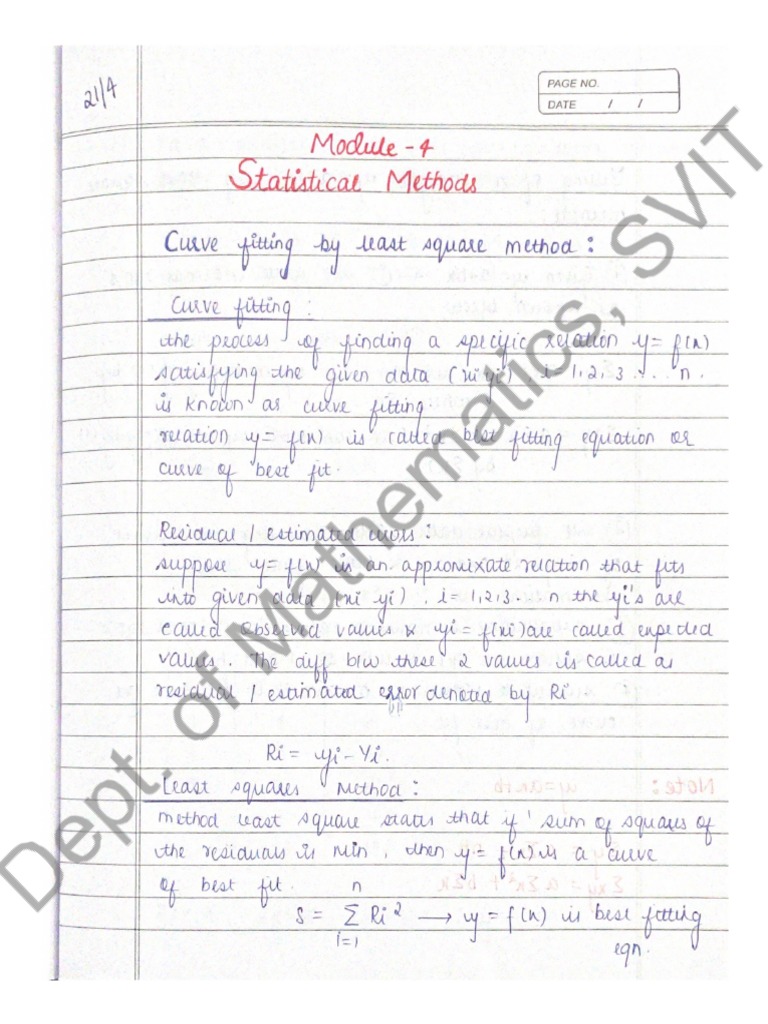 21/4
PAGE NO.
DATE / /
Module - 4
Statistical Methods
Curve fitting by least square method :
Curve fitting :
the process of finding a specific relation y = f(x)
satisfying the given data (xi yi), i = 1, 2, 3 .... n.
is known as curve fitting.
relation y = f(x) is called best fitting equation or
curve of best fit.
Residual / estimated errors :
suppose y = f(x) is an approximate relation that fits
into given data (xi yi), i = 1, 2, 3 ... n the yi's are
called observed values & yi = f(xi) are called expected
values. The diff b/w these 2 values is called as
residual / estimated error denoted by Ri
Ri = yi - Yi.
Least squares method :
method least square states that if sum of squares of
the residuals is min, then y = f(x) is a curve
of best fit.
n
S = Σ Ri² → y = f(x) is best fitting
i=1
eqn.
Note :
y = ax+b
Σxy = aΣx² + bΣx
Dept. of Mathematics, SVIT